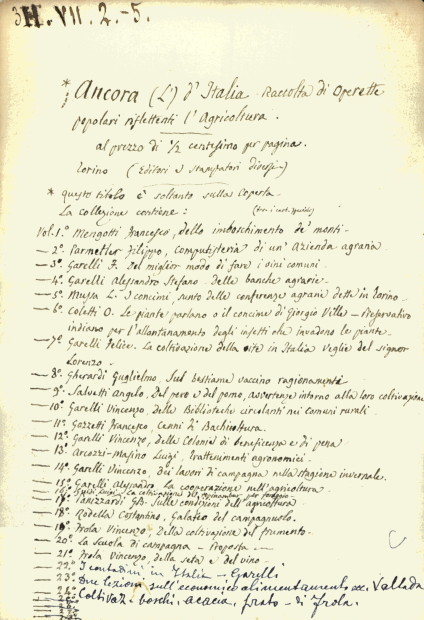 3H. VII. 2.-5.
* Ancora (L') d'Italia - Raccolta di Operette
popolari riflettenti l'Agricoltura.
al prezzo di ½ centesimo per pagina.
Torino (Editori e stampatori diversi)
* questo titolo è soltanto sulla Coperta.
La collezione contiene:
Vol. 1.º Mengotti Francesco, dello imboschimento de' monti -
— 2º. Parmetler Filippo, Computisteria di un'Azienda agraria
— 3º. Garelli F. del miglior modo di fare i vini comuni.
— 4º. Garelli Alessandro Stefano - delle banche agrarie -
— 5º. Mussa L. I concimi, sunto delle conferenze agrarie dette in Torino -
— 6º. Coletti O. Le piante parlano o il concime di Giorgio Ville - Preservativo
indiano per l'allontanamento degli insetti che invadono le piante.
— 7º. Garelli Felice. La coltivazione della vite in Italia Veglie del signor
Lorenzo -
— 8º. Gherardi Guglielmo, Sul bestiame vaccino ragionamento
— 9º. Salvetti Angelo, Del pero e del pomo, avvertenze intorno alla loro coltivazione
— 10º. Garelli Vincenzo, delle Biblioteche circolanti nei comuni rurali
— 11º. Gozzetti Francesco, Cenni di Bachicoltura.
— 12º. Garelli Vincenzo, delle Colonie di beneficenza e di pena
— 13º. Arcozzi-Masino Luigi, trattenimenti agronomici -
— 14º. Garelli Vincenzo, dei lavori di campagna nella stagione invernale.
— 15º. Garelli Alessandro. La cooperazione nell'agricoltura.
Luigi - La coltivazione del
Tanizzardi GB. Sulle condizioni dell'agricoltura
— 18º. Rodella Costantino, Galateo del campagnuolo.
— 19º. Frola Vincenzo, della coltivazione del frumento.
— 20º. La Scuola di campagna - Proposta —
— 21º. Frola Vincenzo, della seta e del vino -
— 22º. I contadini in Italia - Garelli
— 23º. Due lezioni sull'economico alimentamento ecc. Vallada
— 24º. Coltivaz. boschi, acacia, prato - di Frola.